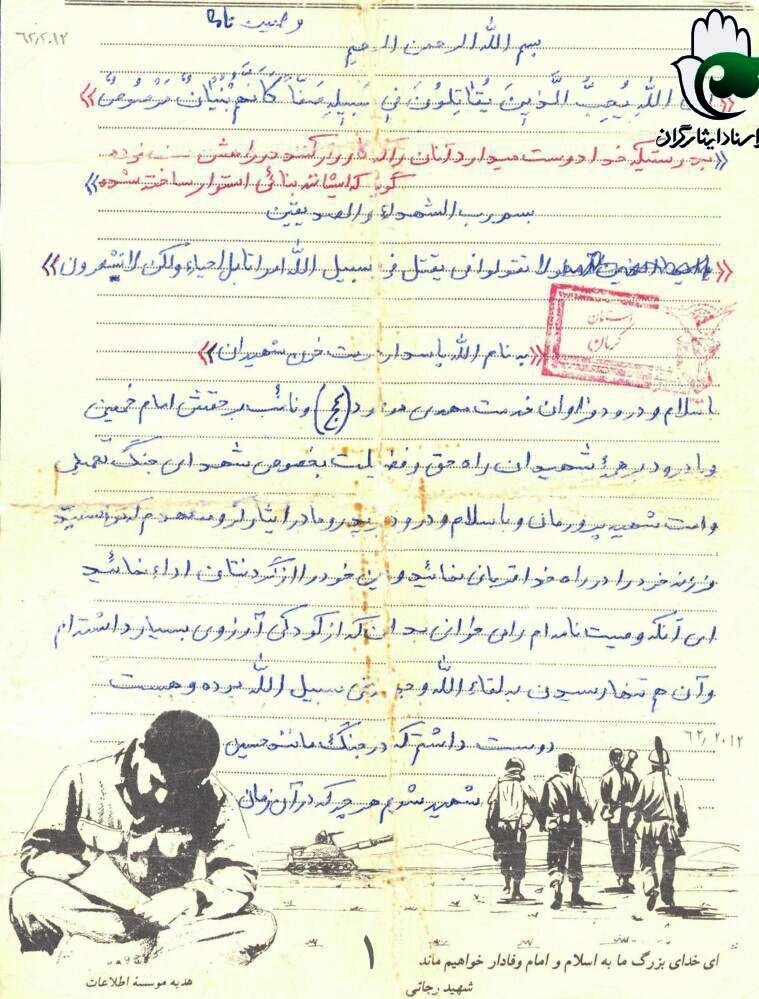 وصیت نامه
۶۲/۲۰۱۲
بسم الله الرحمن الرحیم
اسناد ایثارگران
«ان الله یُحِبُّ الَّذینَ یُقاتِلُونَ فی سَبیلِهِ صَفّاً کَاَنَّهُم بُنْیانٌ مَرْصُوصٌ»
«بدرستیکه خدا دوست میدارد آنان را که کارزار کنند در راهش صف زده
گویا که ایشانند بنائی استوار ساخته شده»
بسم رب الشهداء و الصدیقین
لا تقولوا فی یقتل فی سبیل الله امواتا بل احیاء ولکن لا تشعرون»
استان
کرمان
«به نام الله پاسدار حرمت خون شهیدان»
باسلام و درود فراوان خدمت مهدی موعود (عج) و نائب برحقش امام خمینی
و با درود بر همۀ شهیدان راه حق و فضیلت بخصوص شهدای جنگ تحمیلی
و امت شهید پرورمان و با سلام و درود بر پدر و مادر ایثارگر و متعهدم که توانستید
فرزند خود را در راه خدا قربانی نمائید و دین خود را از گردنتان اداء نمائید
ای آنکه وصیت نامه ام را می خوانی بدان که از کودکی آرزوی بسیار داشته ام
و آن هم تنها رسیدن به لقاء الله و جهاد فی سبیل الله بوده و هست
۶۲/۲۰۱۲
دوست داشتم که در جنگ مانند حسین
شهید شویم هر چه که در آن زمان
۱
ای خدای بزرگ ما به اسلام و امام وفادار خواهیم ماند
شهید رجائی
هدیه موسسه اطلاعات